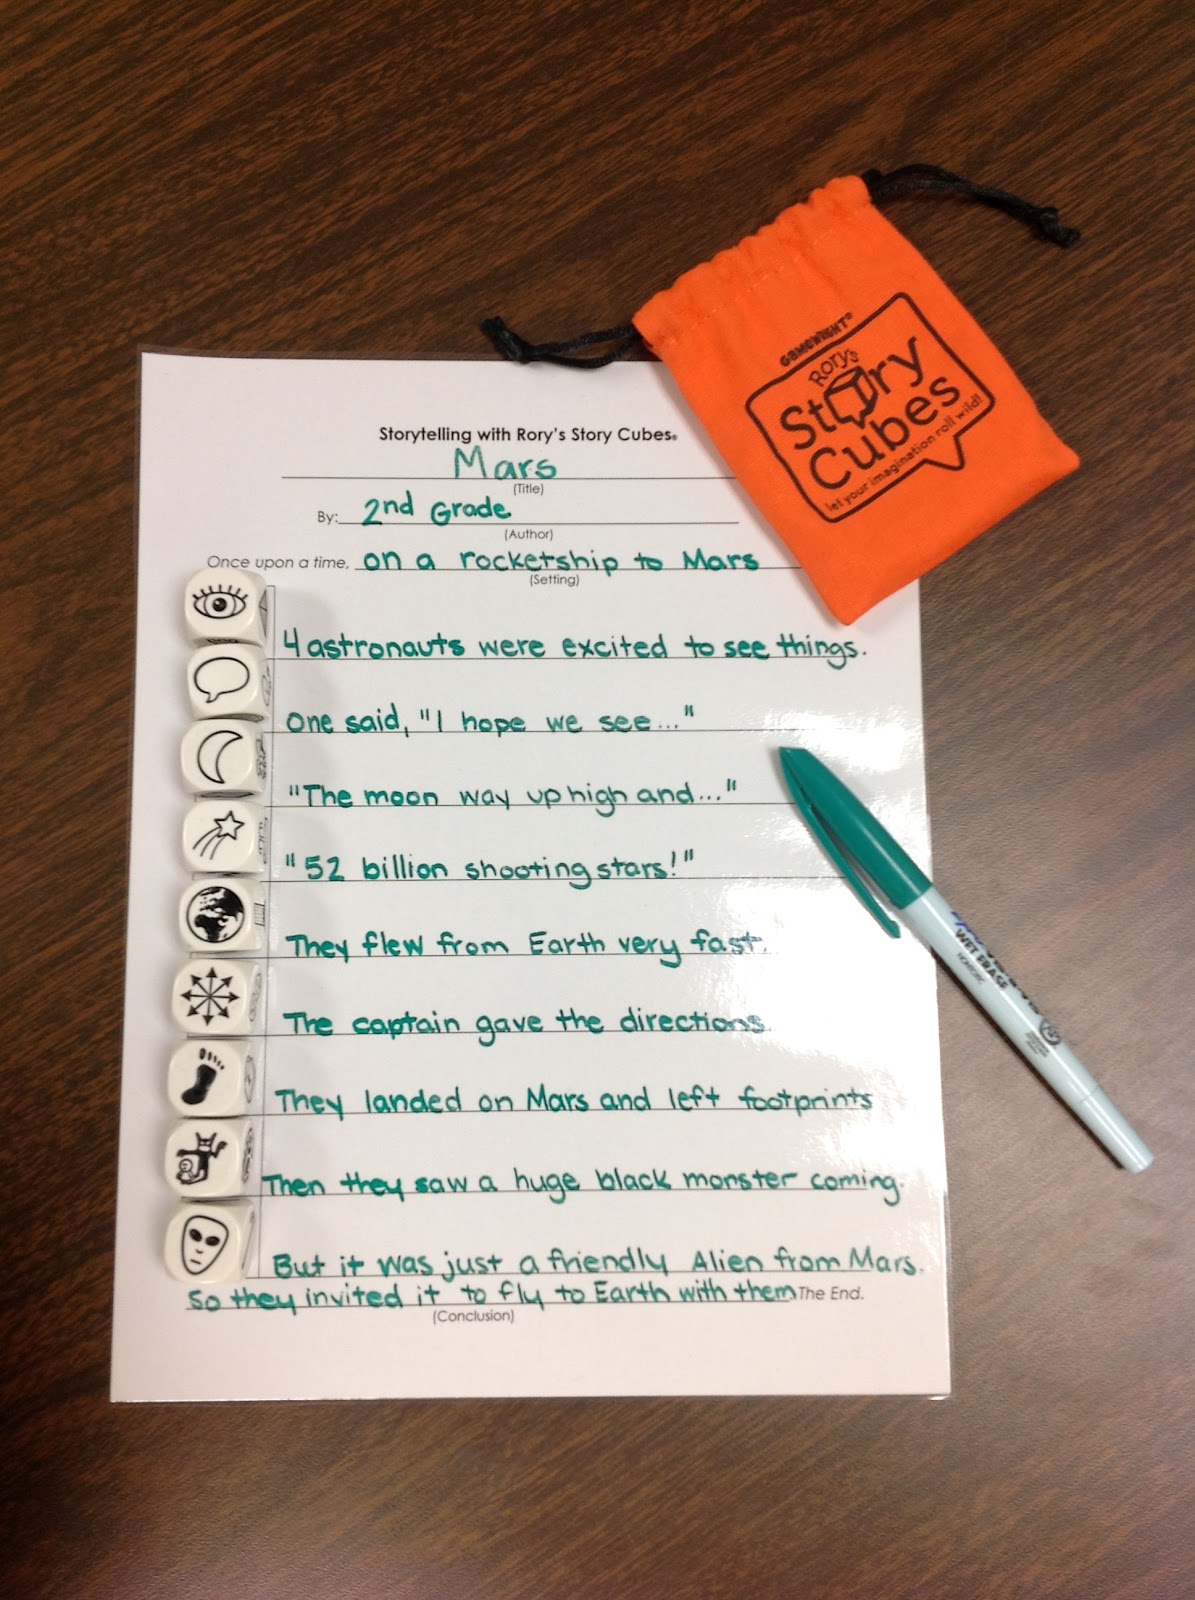 GAMEWRIGHT®
Rory's
Story
Cubes
let your imagination roll wild!
Storytelling with Rory's Story Cubes®
Mars
(Title)
By: 2nd Grade
(Author)
Once upon a time, on a rocketship to Mars
(Setting)
4 astronauts were excited to see things.
One said, "I hope we see..."
"The moon way up high and..."
"52 billion shooting stars!"
They flew from Earth very fast.
The captain gave the directions.
They landed on Mars and left footprints
Then they saw a huge black monster coming.
But it was just a friendly Alien from Mars.
So they invited it to fly to Earth with them. The End.
(Conclusion)
WET ERASE